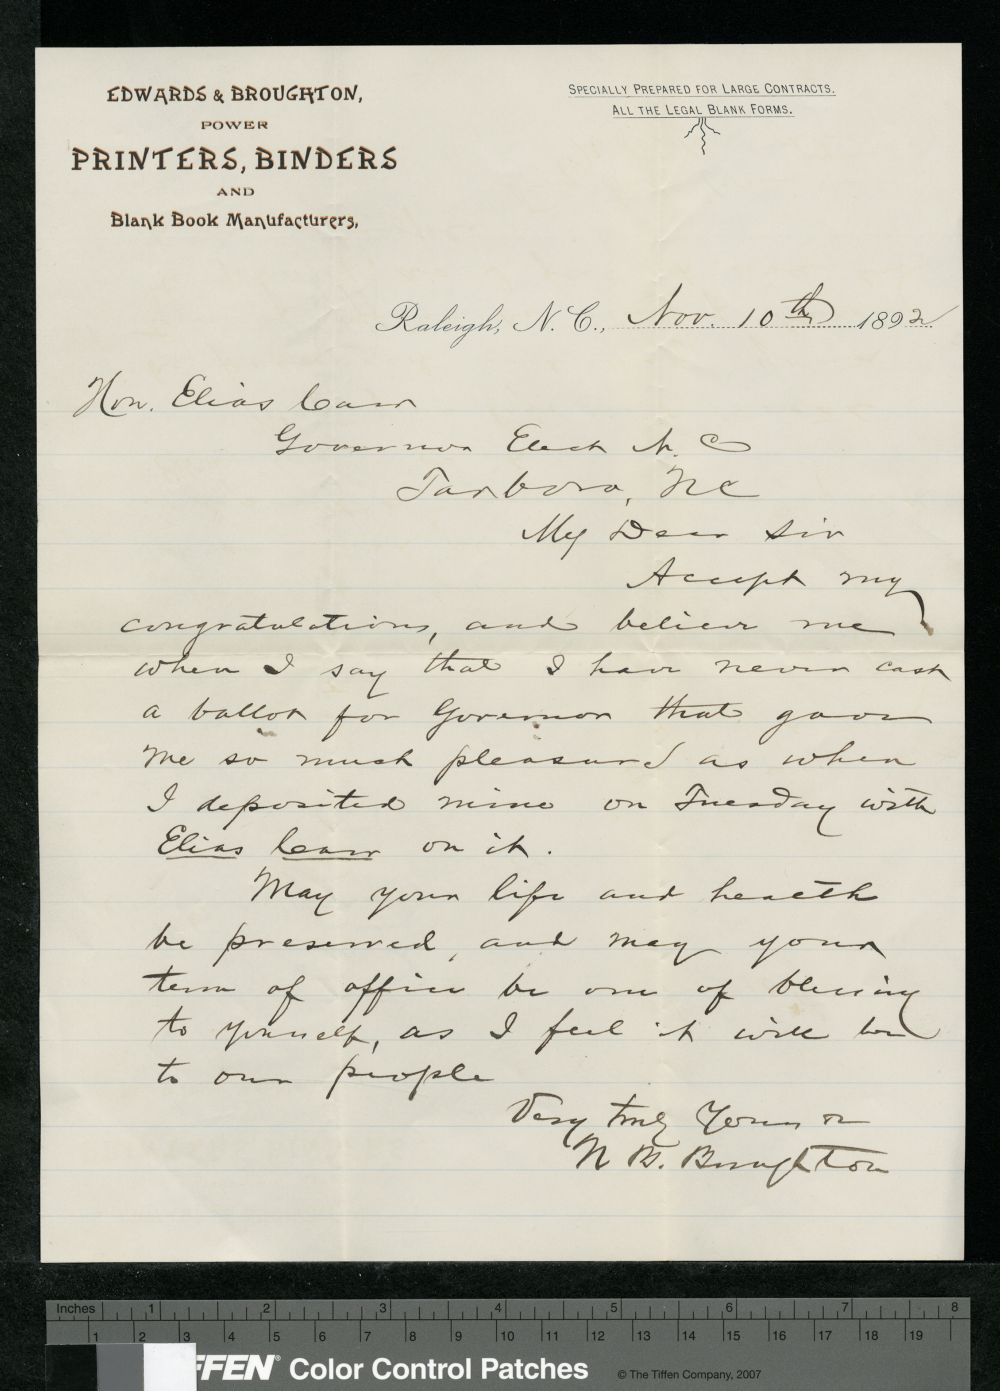 EDWARDS & BROUGHTON,
POWER
PRINTERS, BINDERS
AND
Blank Book Manufacturers,
SPECIALLY PREPARED FOR LARGE CONTRACTS.
ALL THE LEGAL BLANK FORMS.
Raleigh, N. C., Nov. 10th 1892
Hon. Elias Carr
Governor Elect N. C
Tarboro, NC
My Dear Sir
Accept my
congratulations, and believe me
when I say that I have never cast
a ballot for Governor that gave
me so much pleasure as when
I deposited mine on Tuesday with
Elias Carr on it.
May your life and health
be preserved, and may your
term of office be one of blessing
to yourself, as I feel it will be
to our people
Very truly Yours
N B. Broughton
Inches 1 2 3 4 5 6 7 8
1 2 3 4 5 6 7 8 9 10 11 12 13 14 15 16 17 18 19
FFEN® Color Control Patches © The Tiffen Company, 2007